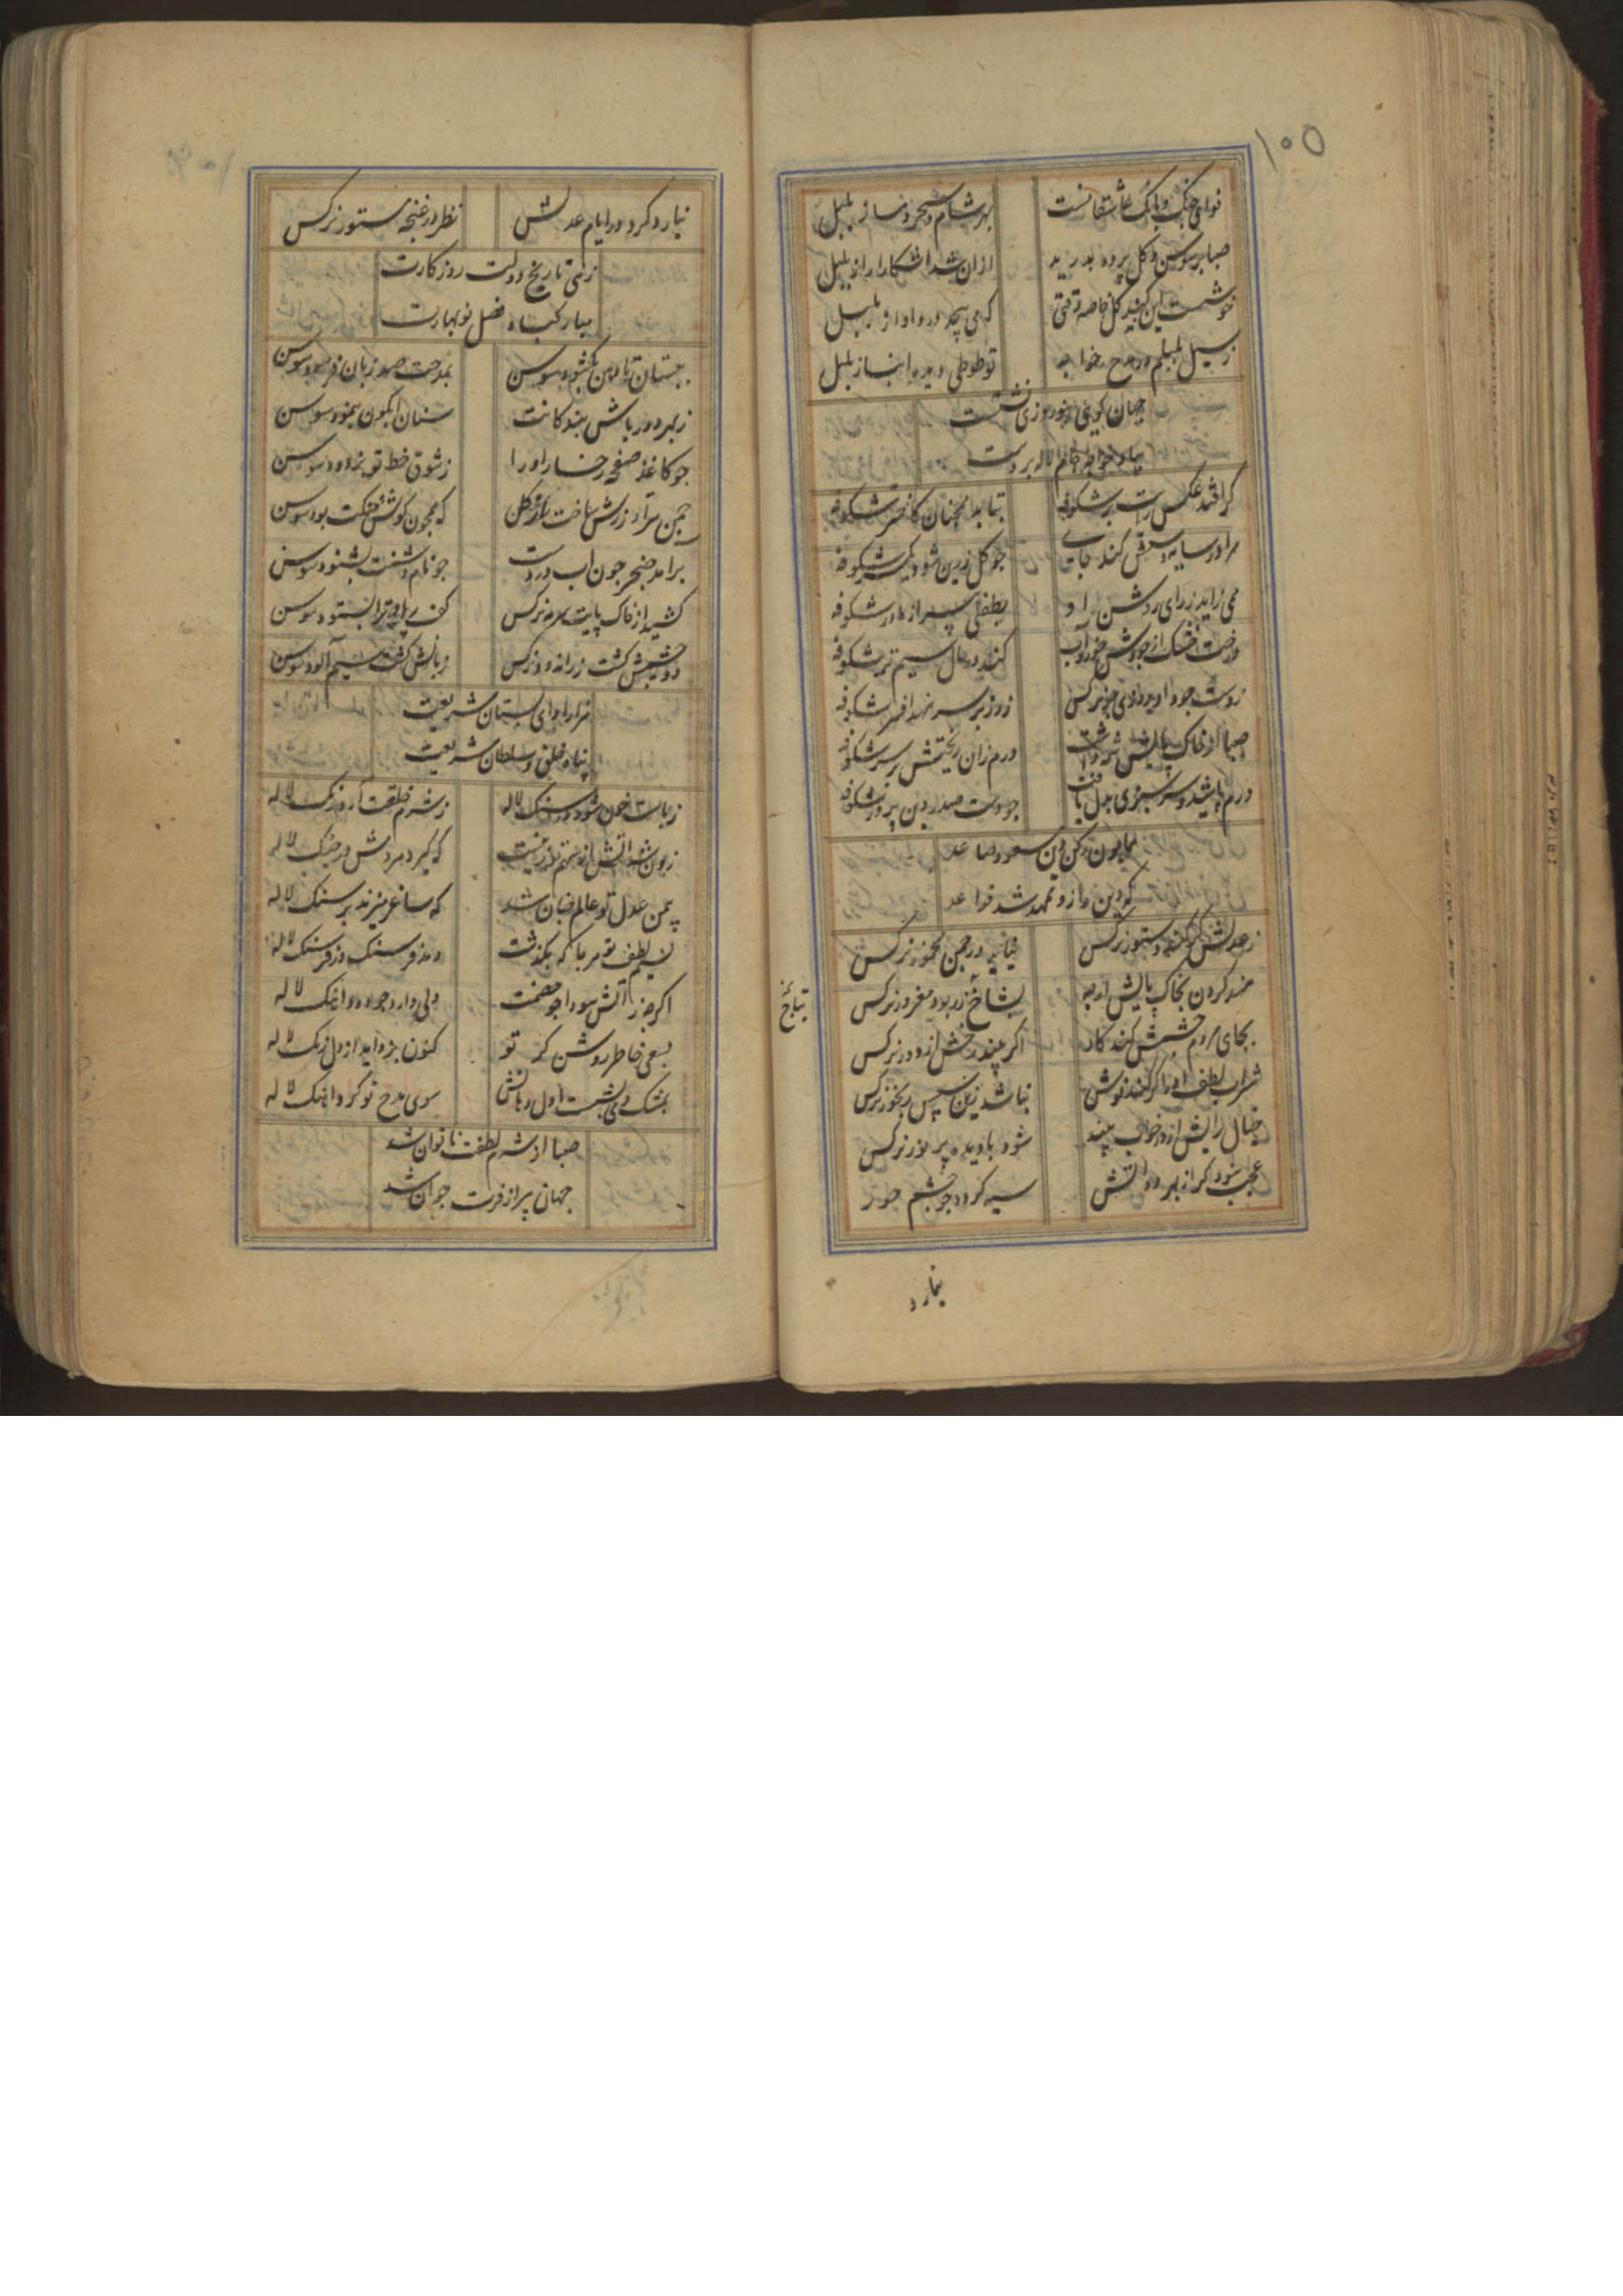 ۱۰۵
نوای چنک و بانک عاشقانست بهر شام و سحر و نساز بلبل
صبا بر سوسن و کل پرده بدرید ازان شد اشکارا راز بلبل
خوشست این کنبد کل خاصه وقتی که می پیچد درو اواز بلبل
رسیل بلبلم در مدح خواجه تو طوطی دیده انباز بلبل
جهان کویی بنوروزی نشست
بیاد خواجه جام لاله بر دست
کر افتد عکس رایت بر شکوفه بتابد همچنان کاختر شکوفه
مرا در سایه سرفی کند جای جو کل زرین شود یکسر شکوفه
می زاید ز رای روشن او بطفلی پیر از مادر شکوفه
درخت خشک از جودش خورد آب کند در حال سیم تر شکوفه
ز دست جود او دیدی جز نرکس ز زر بر سر نهد افسر شکوفه
صبا از خاک پایش شمه داشت درم زان ریختش بر سر شکوفه
درم پاشید و سر سبزی بدل یافت جو دست صدر دین پرور شکوفه
همایون رکن دین مسعود صاعد
که دین را زو ممهد شد قواعد
ز عدلش کر کند دستور نرکس نیاید در چمن مخمور نرکس
بخاک پایش ار به بشاخ زر بود مغرور نرکس
بجای مردم چشمش کند کار اکر بیند رخش از دور نرکس
شراب لطف او را کر کند نوش نباشد زین سپس رنجور نرکس
خیال رایش ار در خواب بیند شود با دیده پر نور نرکس
عجب نبود کر از بهر دواتش سیه کردد جو چشم حور
نیارد
نیارد کرد در ایام عدلش نظر در غنچه مستور نرکس
زهی تاریخ دولت روزکارت
مبارکباد فصل نوبهارت
ببستان تا دهن بکشود سوسن بمدحت صد زبان فرسود سوسن
ز بهر دورباش بندکانت سنان ابکون بنمود سوسن
جو کاغذ صفحه رخسار او را ز شوق خط تو بزدود سوسن
چمن سرآزادزرش ساخت از کل که همچون کوشش خفتت بود سوسن
برامد خنجر چون اب در دست جو نام دشمنت بشنود سوسن
کشید از خاک پایت سرمه نرکس کف پای ترا بستود سوسن
دو چشمش کشت زر اندود نرکس زبانش کشت سیم آلود سوسن
سزاوار آی بستان شریعت
پناه خلق و سلطان شریعت
خون شود در سنک لاله ز شرم خلقت آرد رنک لاله
زبون شد اتش از بیم که کیرد مردمش در چنک لاله
بیمن عدل تو عالم چنان شد که ساغر میزند بر سنک لاله
نسیم لطف تو هر جا که بکذشت دمد فرسنک در فرسنک لاله
اکرچه ز آتش سودا جو خصمت دلی دارد جو دود اهنک لاله
بسعی خاطر روشن کر تو کنون بزداید از دل زنک لاله
بمشک و می بشست اول دهانش سوی مدح تو کرد اهنک لاله
صبا از شرم لطفت ناتوان شد
جهان پیر از فرت جوان شد